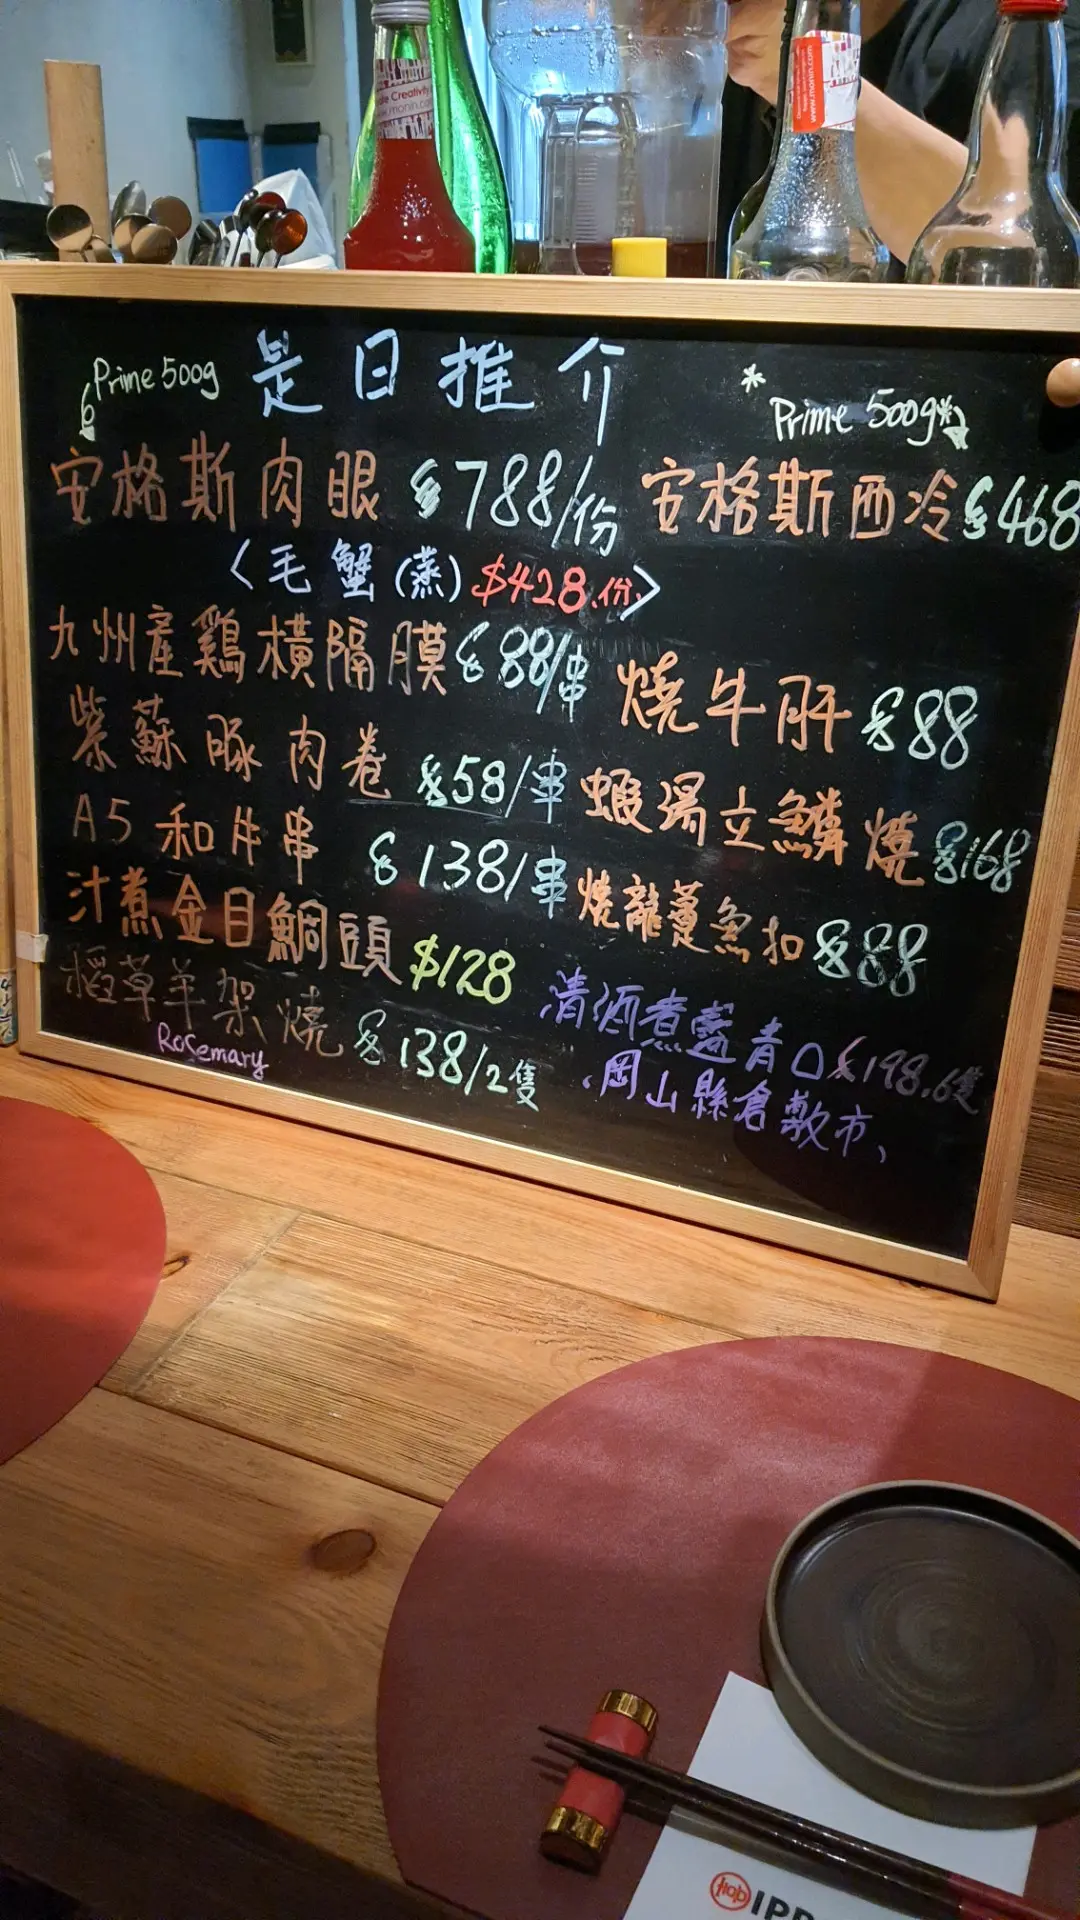 Creativity
www.monin.com
Prime 500g
是日推介
* Prime 500g *
安格斯肉眼 $788/份
安格斯西冷 $468
<毛蟹(蒸) $428.份.>
九州產鷄橫隔膜 $88/串
燒牛肝 $88
紫蘇豚肉卷 $58/串
蝦湯立鱗燒 $168
A5和牛串 $138/串
燒龍躉魚扣 $88
汁煮金目鯛頭 $128
清酒煮 青口 $198.6隻
稻草羊架燒 $138/2隻
Rosemary
、岡山縣倉敷市、
IPP